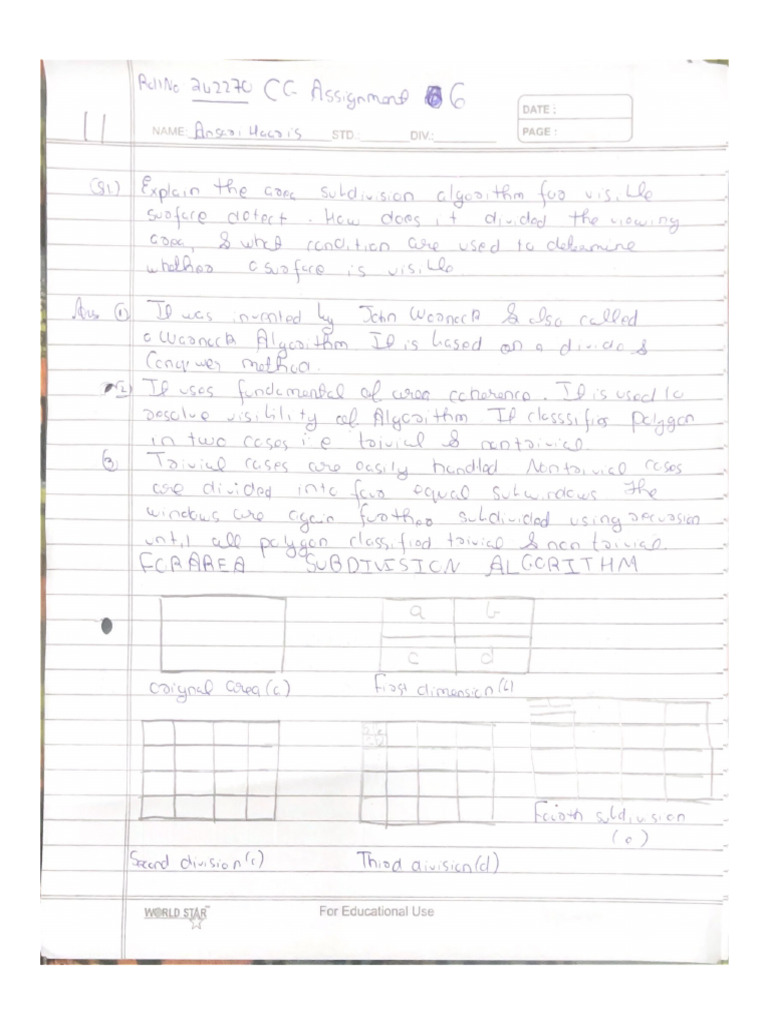 Roll No 242270 CG Assignment 6
DATE :
11
NAME: Ansari Haaris STD.: DIV.: PAGE :
Q1) Explain the area subdivision algorithm for visible
surface detect. How does it divided the viewing
area, & what condition are used to determine
whether a surface is visible.
Ans ① It was invented by John Warnock & also called
a Warnock Algorithm It is based on a divide &
Conquer method.
② It uses fundamental of area coherence. It is used to
resolve visibility of Algorithm It classsifies polygon
in two cases i.e trivial & nontrivial.
③ Trivial cases are easily handled Nontrivial cases
are divided into four equal subwindows The
windows are again further subdivided using recursion
until all polygon classified trivial & non trivial.
FOR AREA SUBDIVISION ALGORITHM
a b
c d
orignal area (a) First dimension (b)
Fourth subdivision
(e)
Second division (c) Third division (d)
WORLD STAR For Educational Use